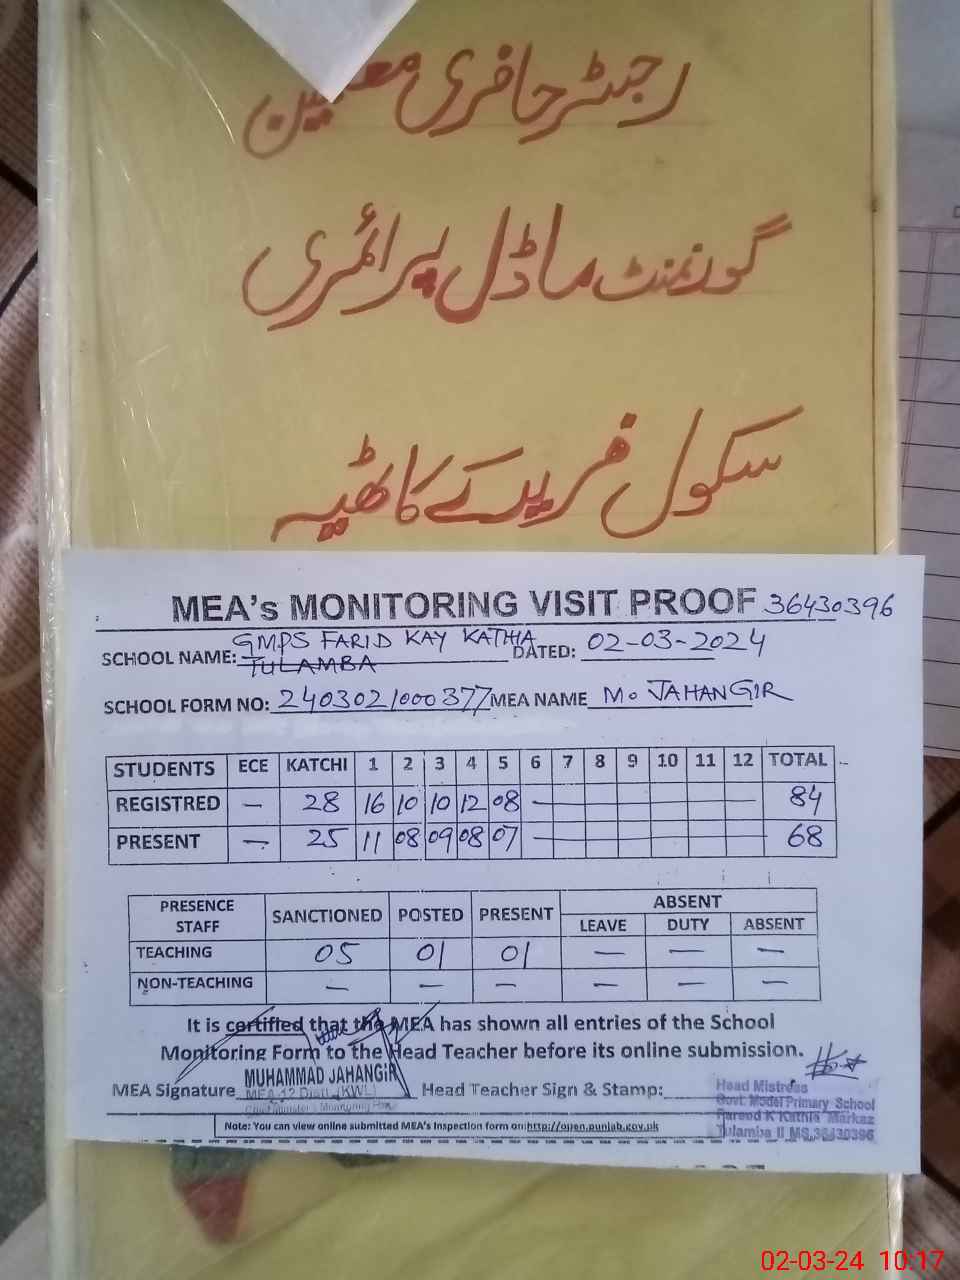 رجسٹر حاضری معلمین
گورنمنٹ ماڈل پرائمری
سکول فرید کے کاٹھیہ
MEA's MONITORING VISIT PROOF 36430396
SCHOOL NAME: GMPS FARID KAY KATHIA DATED: 02-03-2024
TULAMBA
SCHOOL FORM NO: 2403021000377 MEA NAME M. JAHANGIR
STUDENTS ECE KATCHI 1 2 3 4 5 6 7 8 9 10 11 12 TOTAL
REGISTRED — 28 16 10 10 12 08 — 84
PRESENT — 25 11 08 09 08 07 — 68
PRESENCE STAFF SANCTIONED POSTED PRESENT ABSENT
LEAVE DUTY ABSENT
TEACHING 05 01 01 — — —
NON-TEACHING — — — — — —
It is certified that the MEA has shown all entries of the School
Monitoring Form to the Head Teacher before its online submission.
MEA Signature MUHAMMAD JAHANGIR Head Teacher Sign & Stamp:
MEA-12 Distt. (KWL)
Head Mistress
Govt. Model Primary School
Fareed K Kathia Markaz
Tulamba II MS,36430396
Note: You can view online submitted MEA's Inspection form on:http://open.punjab.gov.pk
02-03-24 10:17